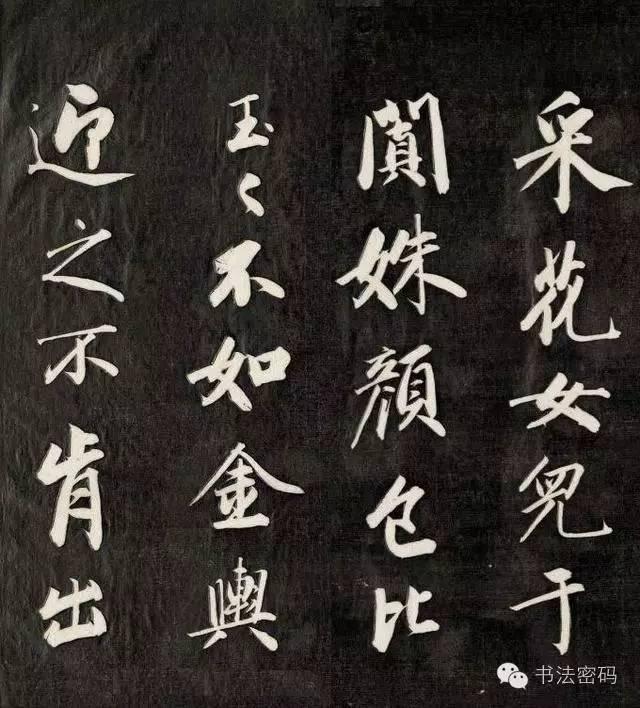 采花女兒于
闐姝顏色比
玉〻不如金輿
迎之不肯出
书法密码